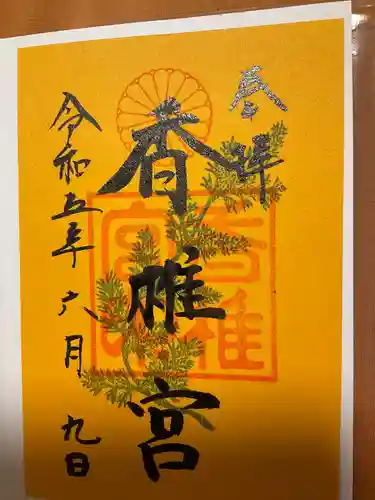 奉拝
香椎宮
令和五年六月九日
香椎宮印